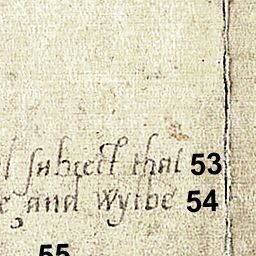 l subiect that 53
e and wylbe 54
55